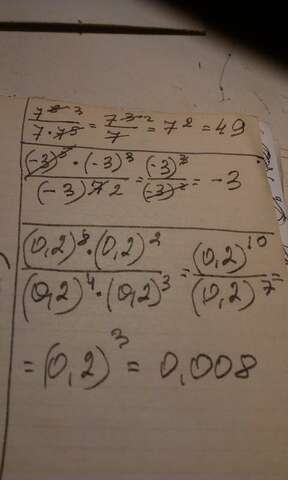 7^8 3 / 7 · 7^5 = 7^3 2 / 7 = 7^2 = 49
(-3)^5 · (-3)^3 / (-3)^7 2 = (-3)^3 / (-3)^2 = -3
(0,2)^8 · (0,2)^2 / (0,2)^4 · (0,2)^3 = (0,2)^10 / (0,2)^7 =
= (0,2)^3 = 0,008